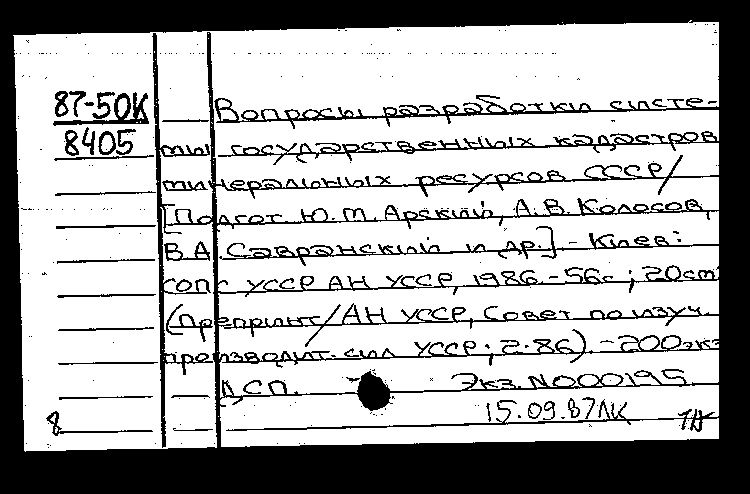 87-50К
8405
Вопросы разработки систе-
мы государственных кадастров
минеральных ресурсов СССР/
[Подгот. Ю.М. Арский, А.В. Колосов,
В.А. Савранский и др.] - Киев:
СОПС УССР АН УССР, 1986. - 56с ; 20см
(Препринт/АН УССР, Совет по изуч.
производит. сил УССР ; 2·86). - 200экз
ДСП. Экз. N000195.
15.09.87ЛК
8